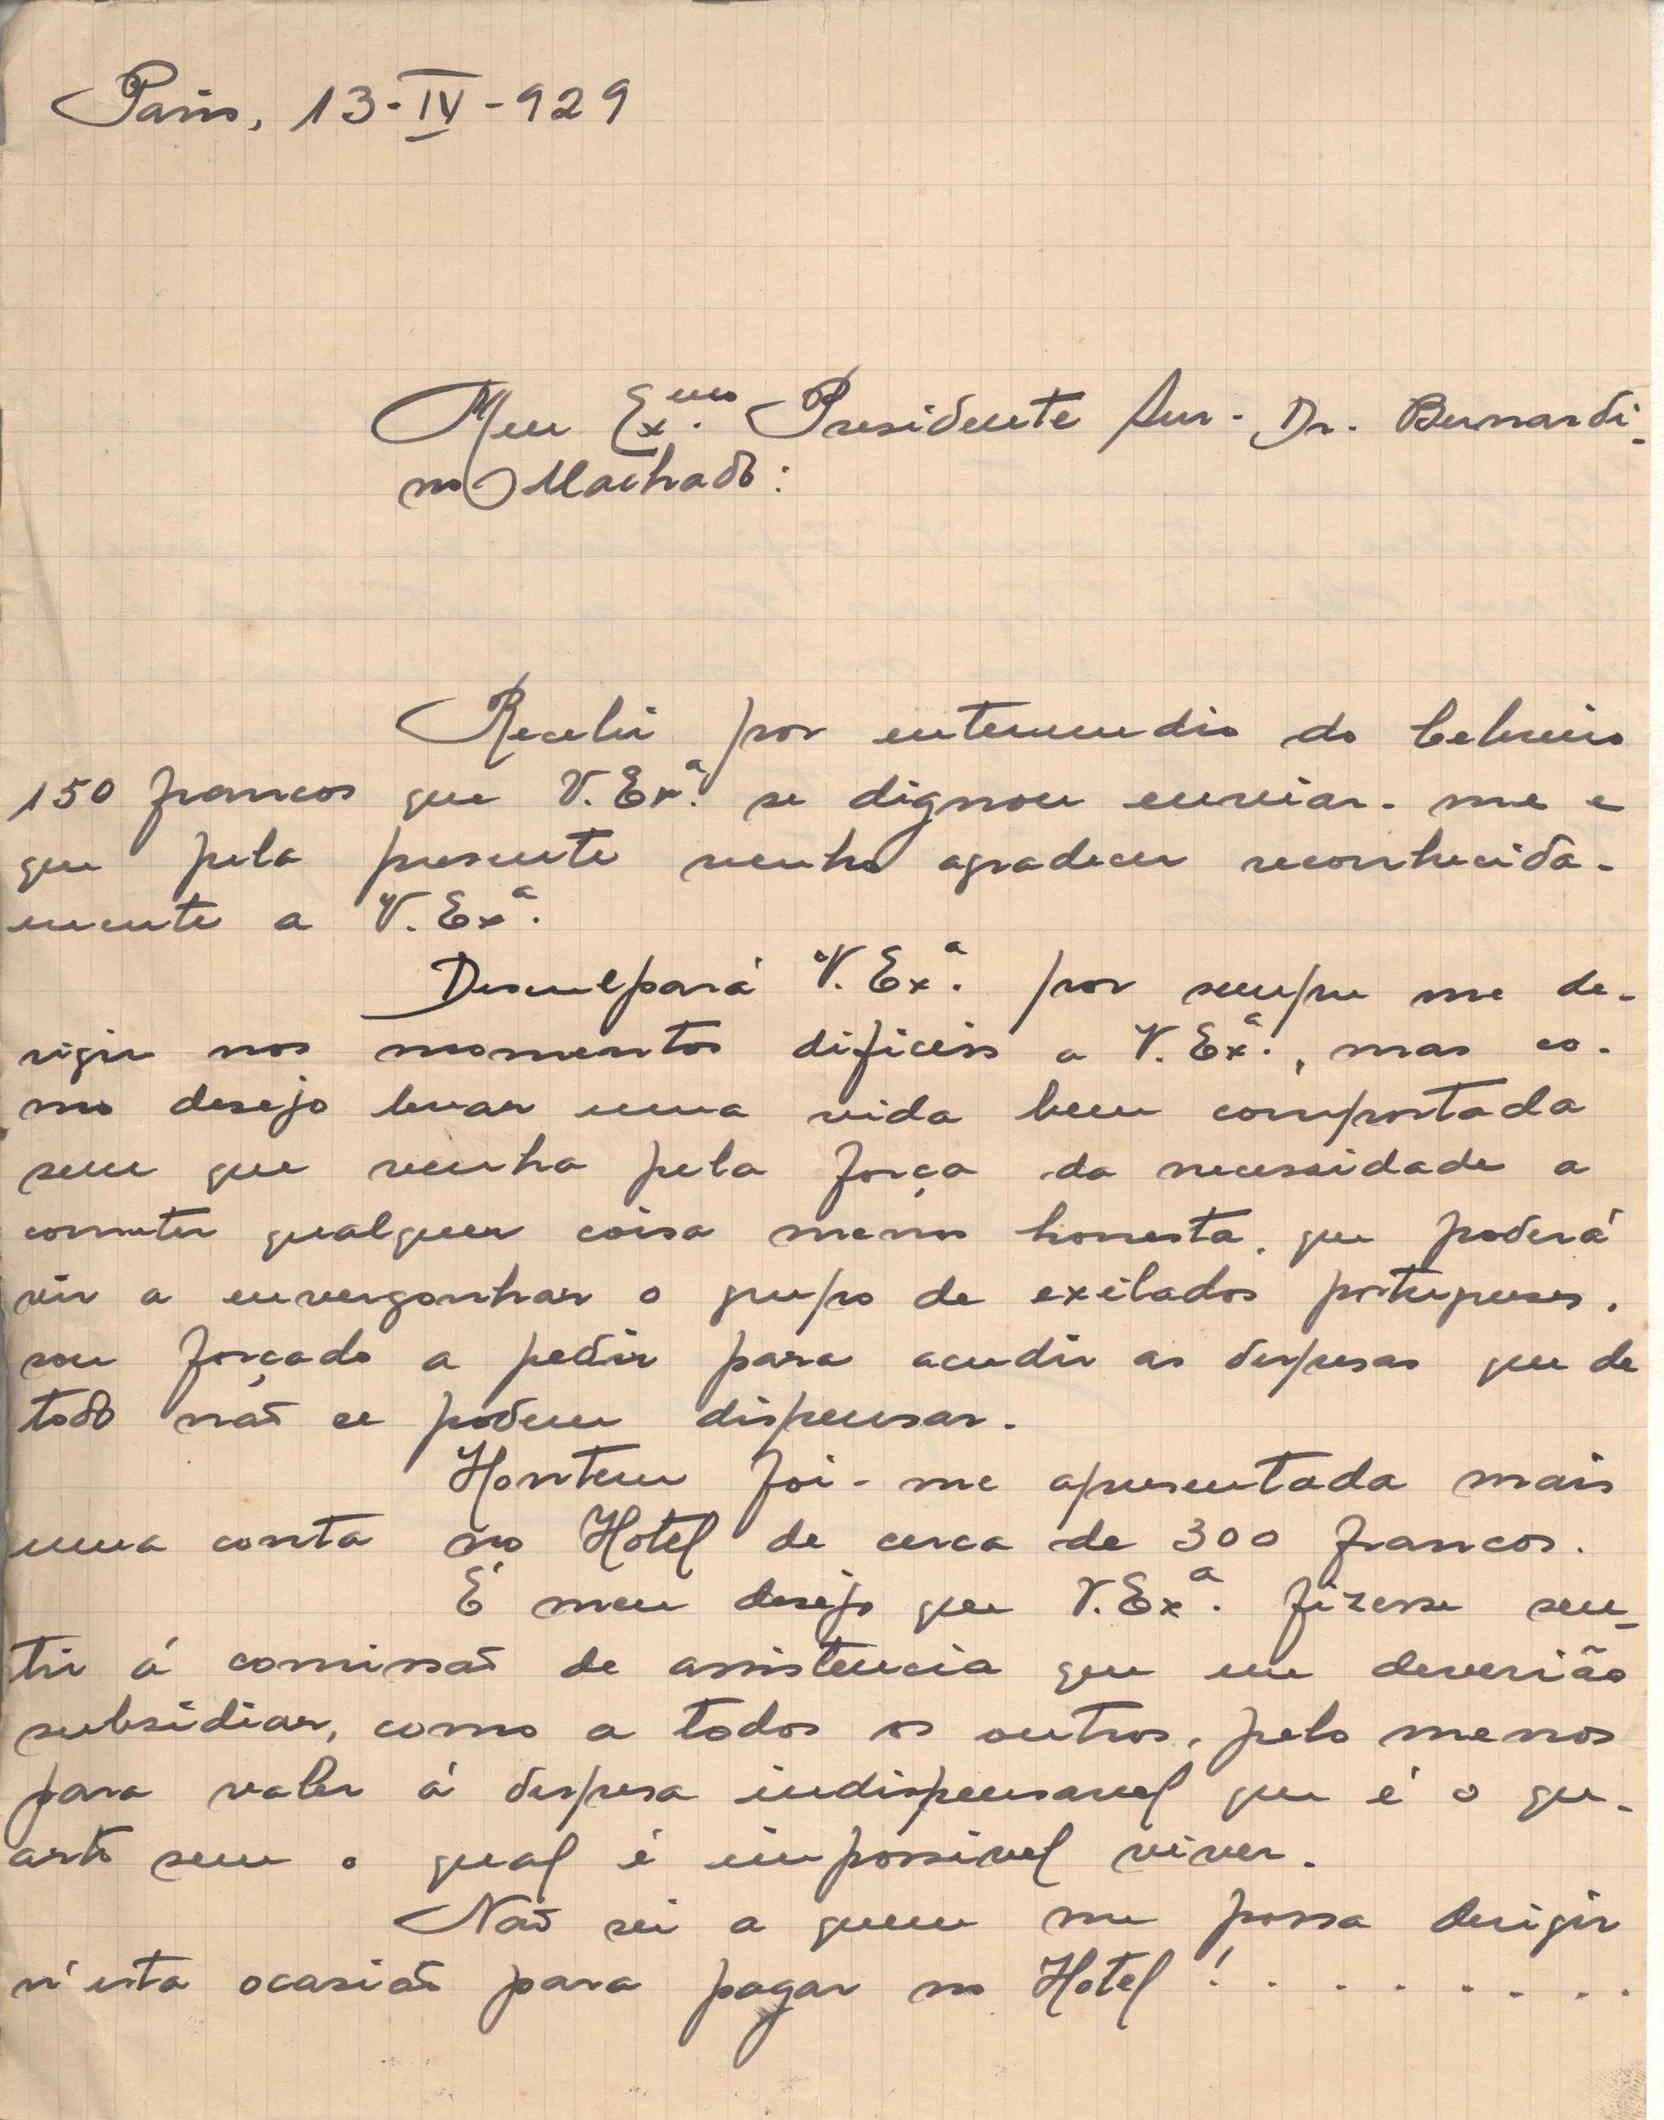 Paris, 13-IV-929
Meu Exmo. Presidente Snr. Dr. Bernardi-
no Machado:
Recebi por entermundio do Cebreiro
150 francos que V. Exª. se dignou enviar-me e
que pela presente venho agradecer reconhecida-
mente a V. Exª.
Desculpará V. Exª. por sempre me de-
rigir nos momentos dificeis a V. Exª., mas co-
mo desejo levar uma vida bem comportada
sem que venha pela força da necessidade a
cometer qualquer coisa menos honesta, que poderá
vir a envergonhar o grupo de exilados portugueses,
sou forçado a pedir para acudir as despesas que de
todo não se podem dispensar.
Hontem foi-me apresentada mais
uma conta no Hotel de cerca de 300 francos.
É meu desejo que V. Exª. fizesse sen-
tir á comissão de assistencia que me deverião
subsidiar, como a todos os outros, pelo menos
para valer á despesa indispensavel que é o qu-
arto sem o qual é impossivel viver.
Não sei a quem me possa derigir
n'esta ocasião para pagar no Hotel! . . . . . . .